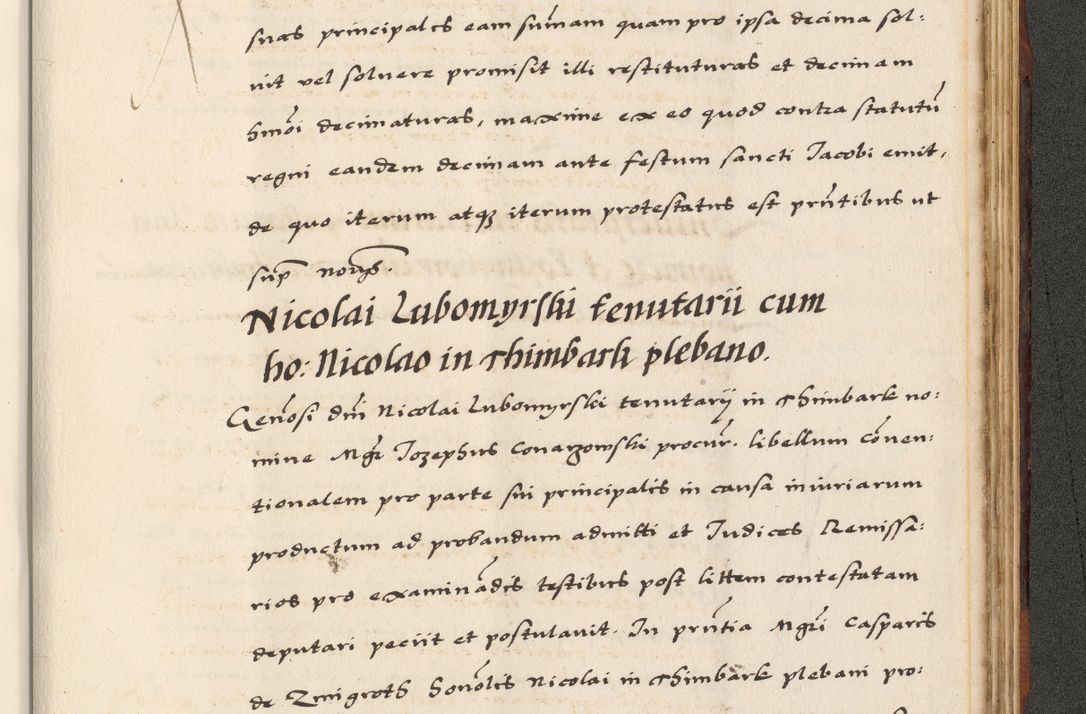 suas principales eam sum̃am quam pro ipsa decima sol:
uit vel soluere promisit illi restituturas et decimam
hmõi decimaturas, maxime ex eo quod contra statutũ
regni eandem decimam ante festum sancti Iacobi emit,
de quo iterum atqȝ iterum protestatus est prñtibus ut
sup̃
Nicolai Lubomyrski tenutarii cum
ho: Nicolao in Thimbark plebano.
Geñosi dñi Nicolai Lubomyrski tenutarij in Thimbark no:
mine Mgr̃ Iozephus Conarzowski procur̃. libellum cõnen:
tionalem pro parte sui principalis in causa iniuriarum
productum ad probandum admitti et Iudices Remissa:
rios pro examinãdis testibus post littem contestatam
deputari peciit et postulauit. In prñtia Mgr̃i Casparis
de Zmigroth honõlis Nicolai in Thimbark plebani pro: